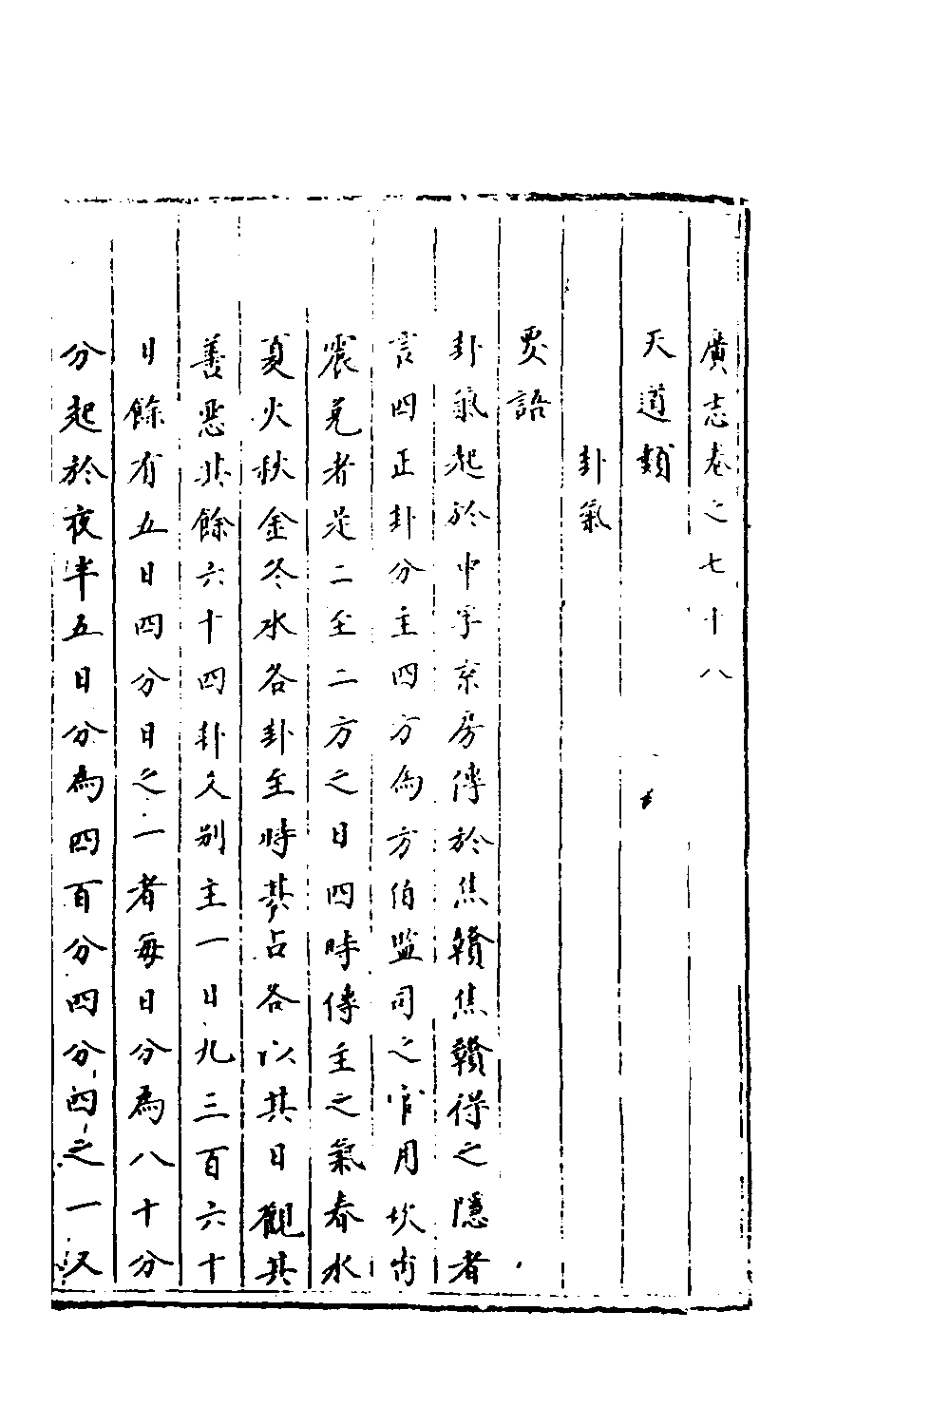 廣志卷之七十八
天道類
卦氣
賈語
卦氣起於中孚京房傳於焦贛焦贛得之隱者
言四正卦分主四方為方伯監司之官用坎离
震兌者是二至二方之日四時傳主之氣春水
夏火秋金冬水各卦至時其占各以其日觀其
善惡其餘六十四卦久別主一日九三百六十
日餘有五日四分日之一者每日分為八十分
分起於夜半五日分為四百分四分四之一又